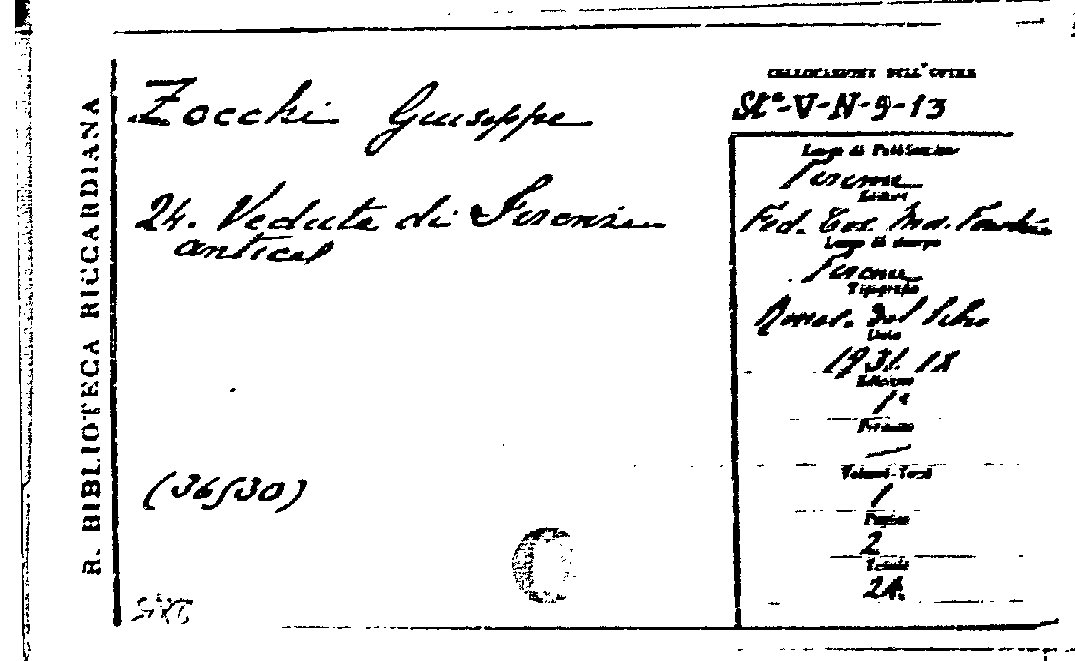 R. BIBLIOTECA RICCARDIANA
Zocchi Giuseppe
24. Vedute di Firenze
antica
(36530)
COLLOCAZIONE DELL'OPERA
St°-V-N-9-13
Luogo di Pubblicazione
Firenze
Editore
Fed.
Luogo di stampa
Firenze
Tipografia
Data
1931. IX
Edizione
1ª
Prezzo
—
Volumi-Tomi
1
Pagine
2
Tavole
24.